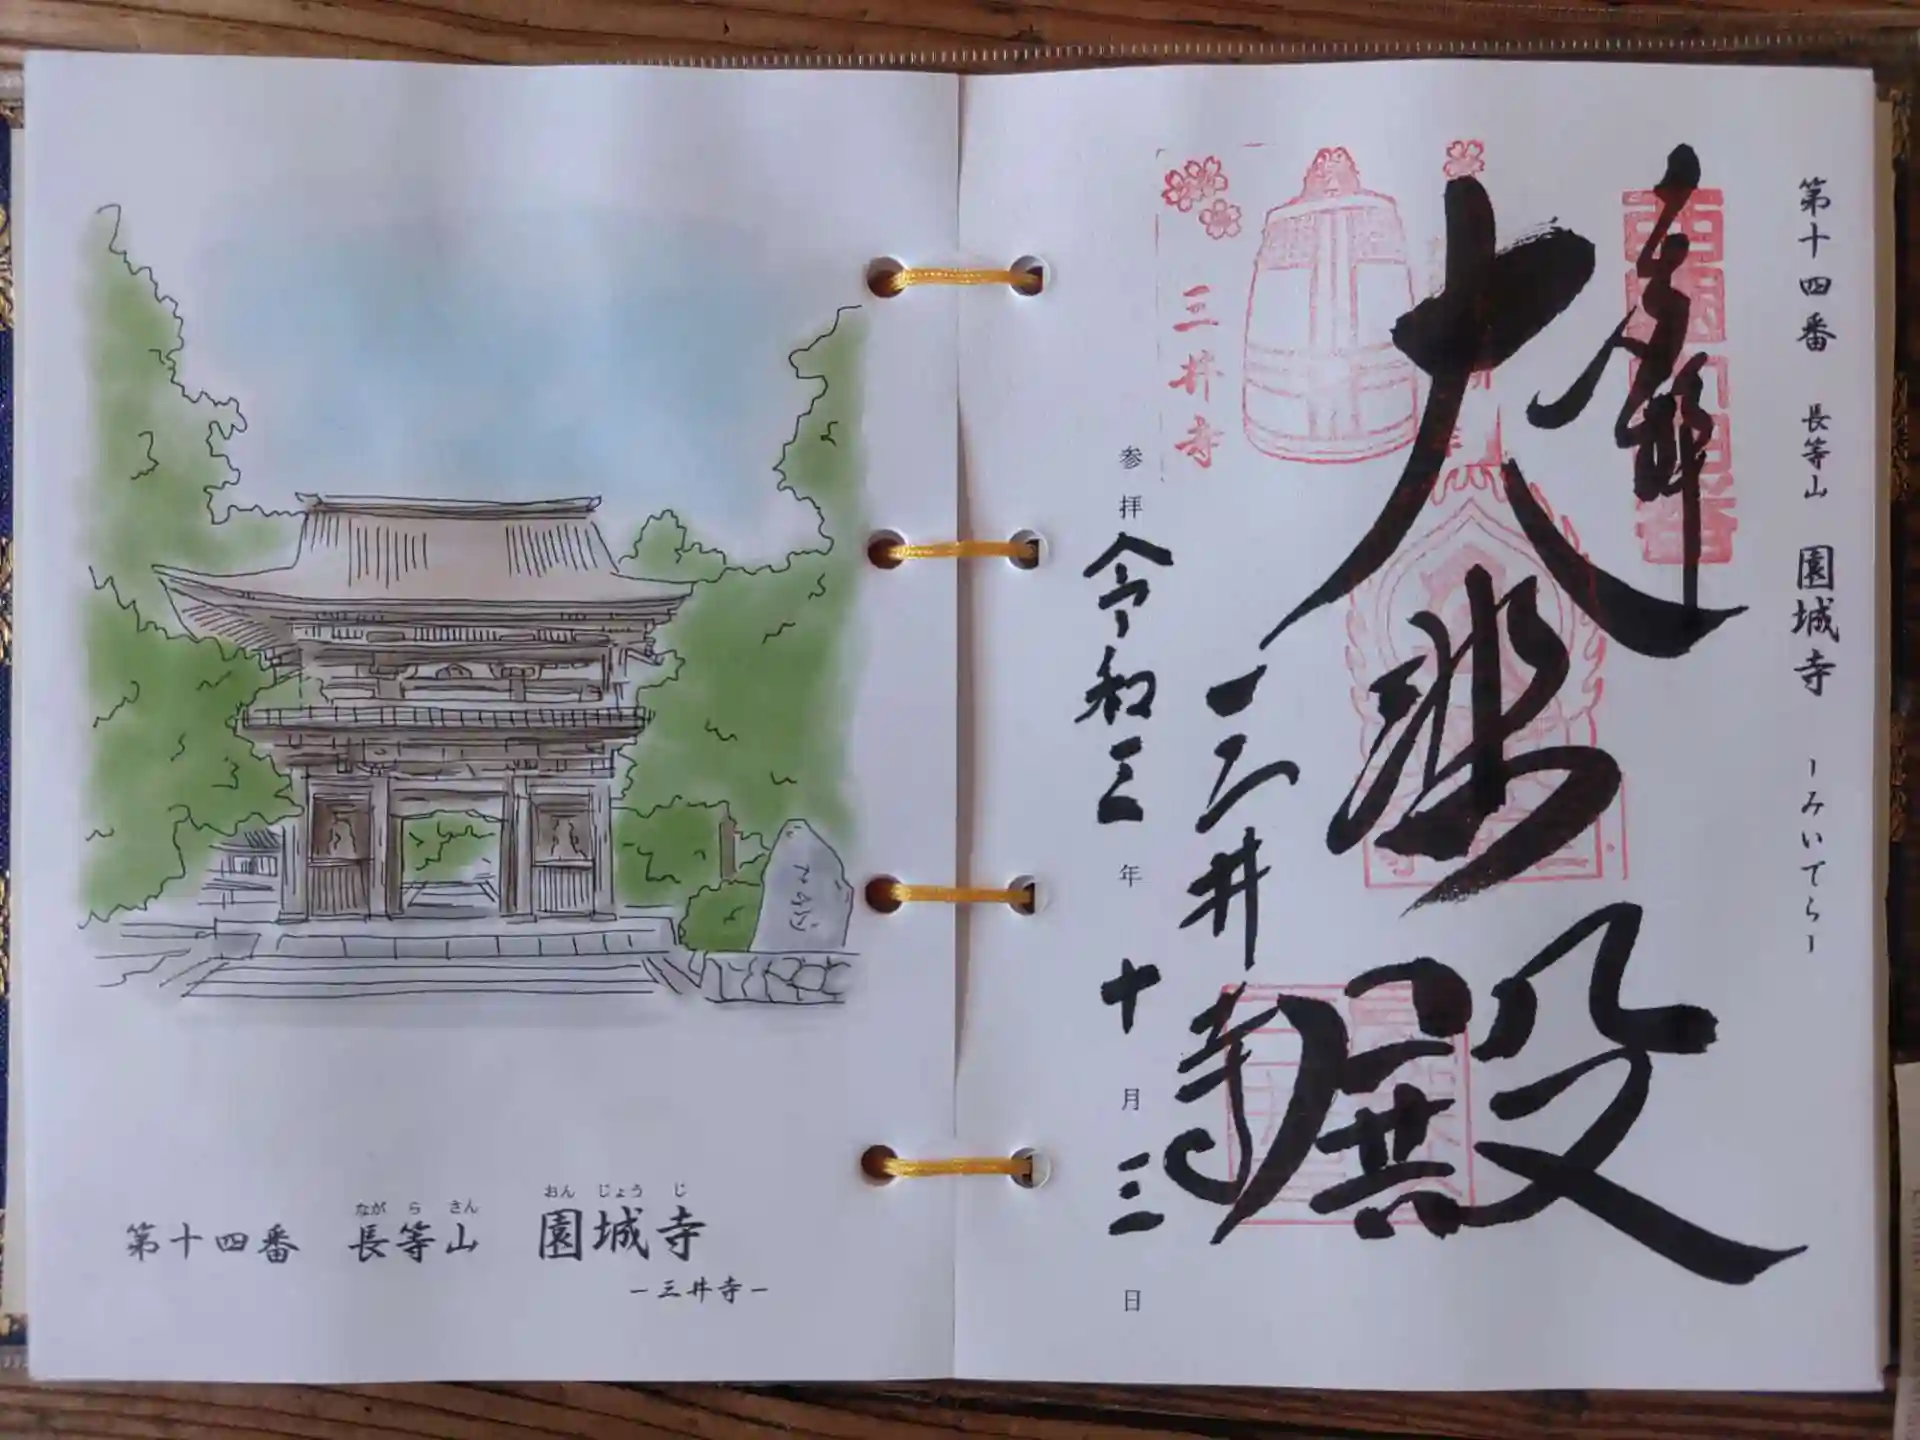 第十四番 長等山 園城寺 -みいでら-
奉拝
大悲殿
三井寺
三井寺
参拝 令和三年 十月三日
なが ら さん おん じょう じ
第十四番 長等山 園城寺
-三井寺-